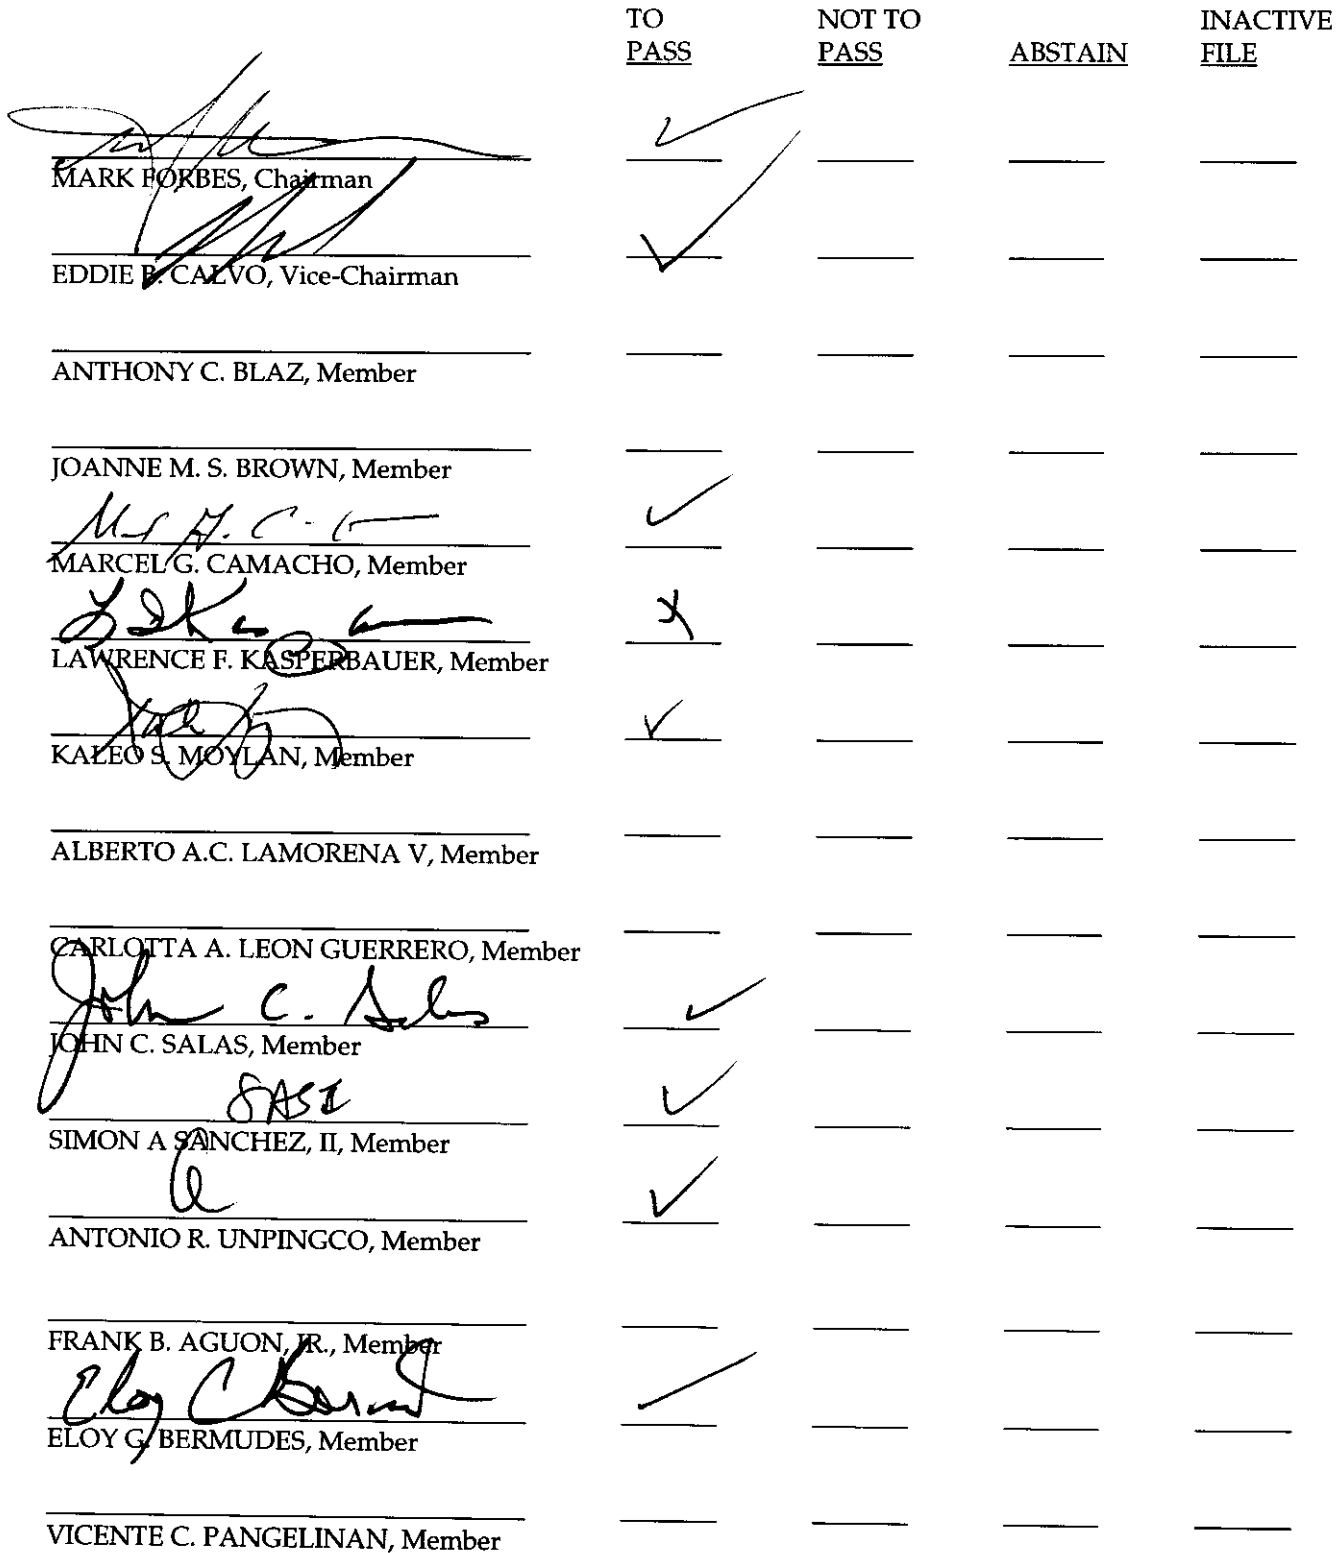 TO NOT TO INACTIVE
PASS PASS ABSTAIN FILE
MARK FORBES, Chairman
EDDIE B. CALVO, Vice-Chairman
ANTHONY C. BLAZ, Member
JOANNE M. S. BROWN, Member
MARCEL G. CAMACHO, Member
LAWRENCE F. KASPERBAUER, Member
KALEO S. MOYLAN, Member
ALBERTO A.C. LAMORENA V, Member
CARLOTTA A. LEON GUERRERO, Member
John C. Salas
JOHN C. SALAS, Member
SASI
SIMON A SANCHEZ, II, Member
ANTONIO R. UNPINGCO, Member
FRANK B. AGUON, JR., Member
Eloy C
ELOY G. BERMUDES, Member
VICENTE C. PANGELINAN, Member